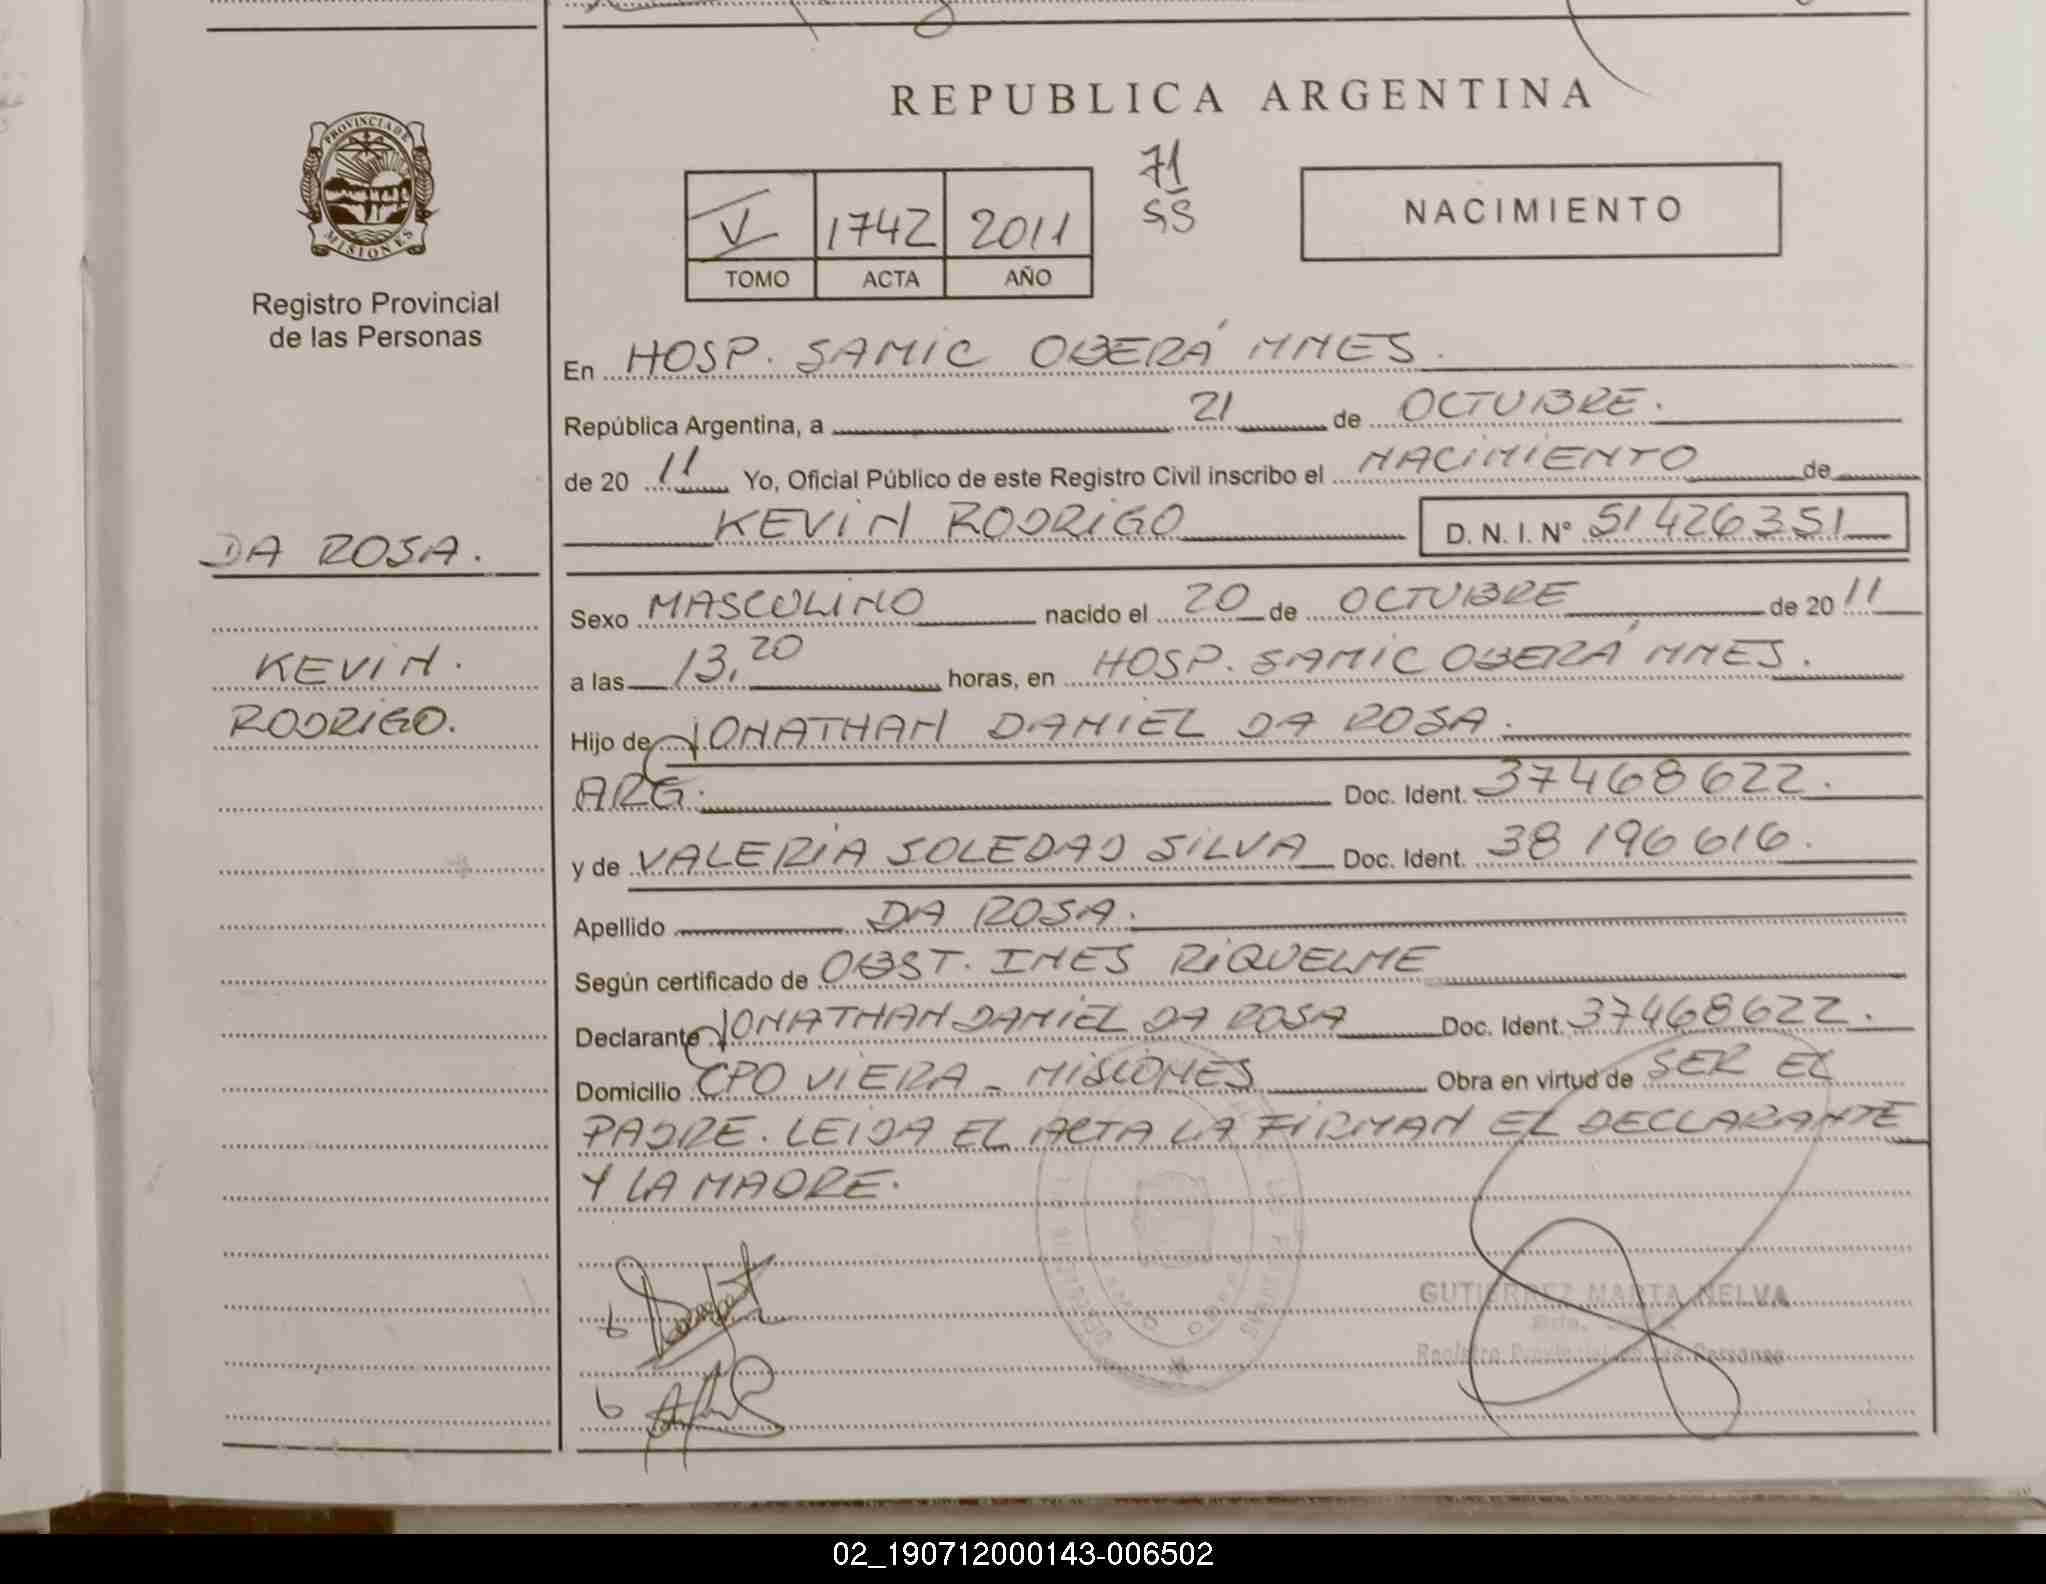 REPUBLICA ARGENTINA
PROVINCIA DE
MISIONES
Registro Provincial
de las Personas
71
SS
V 1742 2011
TOMO ACTA AÑO
NACIMIENTO
En HOSP. SAMIC OBERÁ MNES.
República Argentina, a 21 de OCTUBRE.
de 20 11 Yo, Oficial Público de este Registro Civil inscribo el NACIMIENTO de
KEVIN RODRIGO D. N. I. Nº 51426351
DA ROSA.
Sexo MASCULINO nacido el 20 de OCTUBRE de 20 11
KEVIN.
a las 13,20 horas, en HOSP. SAMIC OBERÁ MNES.
RODRIGO.
Hijo de JONATHAN DANIEL DA ROSA.
ARG. Doc. Ident. 37468622.
y de VALERIA SOLEDAD SILVA Doc. Ident. 38196616.
Apellido DA ROSA.
Según certificado de OBST. INES RIQUELME
Declarante JONATHAN DANIEL DA ROSA Doc. Ident. 37468622.
Domicilio CPO VIERA - MISIONES Obra en virtud de SER EL
PADRE. LEIDA EL ACTA LA FIRMAN EL DECLARANTE
Y LA MADRE.
GUTIERREZ MARTA NELVA
Registro Provincial de las Personas
02_190712000143-006502